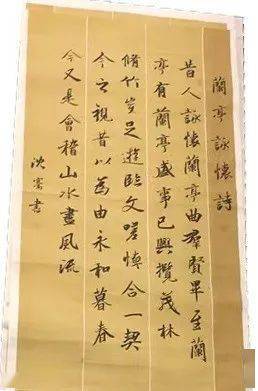 蘭亭詠懷詩
昔人詠懷蘭亭曲群賢畢至蘭
亭有蘭亭盛事已興攬茂林
脩竹豈足遊臨文嗟悼合一契
今之視昔以為由永和暮春
今又是會稽山水盡風流
沈書